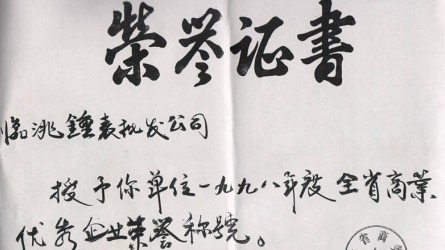 榮誉证書
临洮鍾表批发公司
授予你单位一九九八年度全省商業
优秀企业荣誉称號。
省商